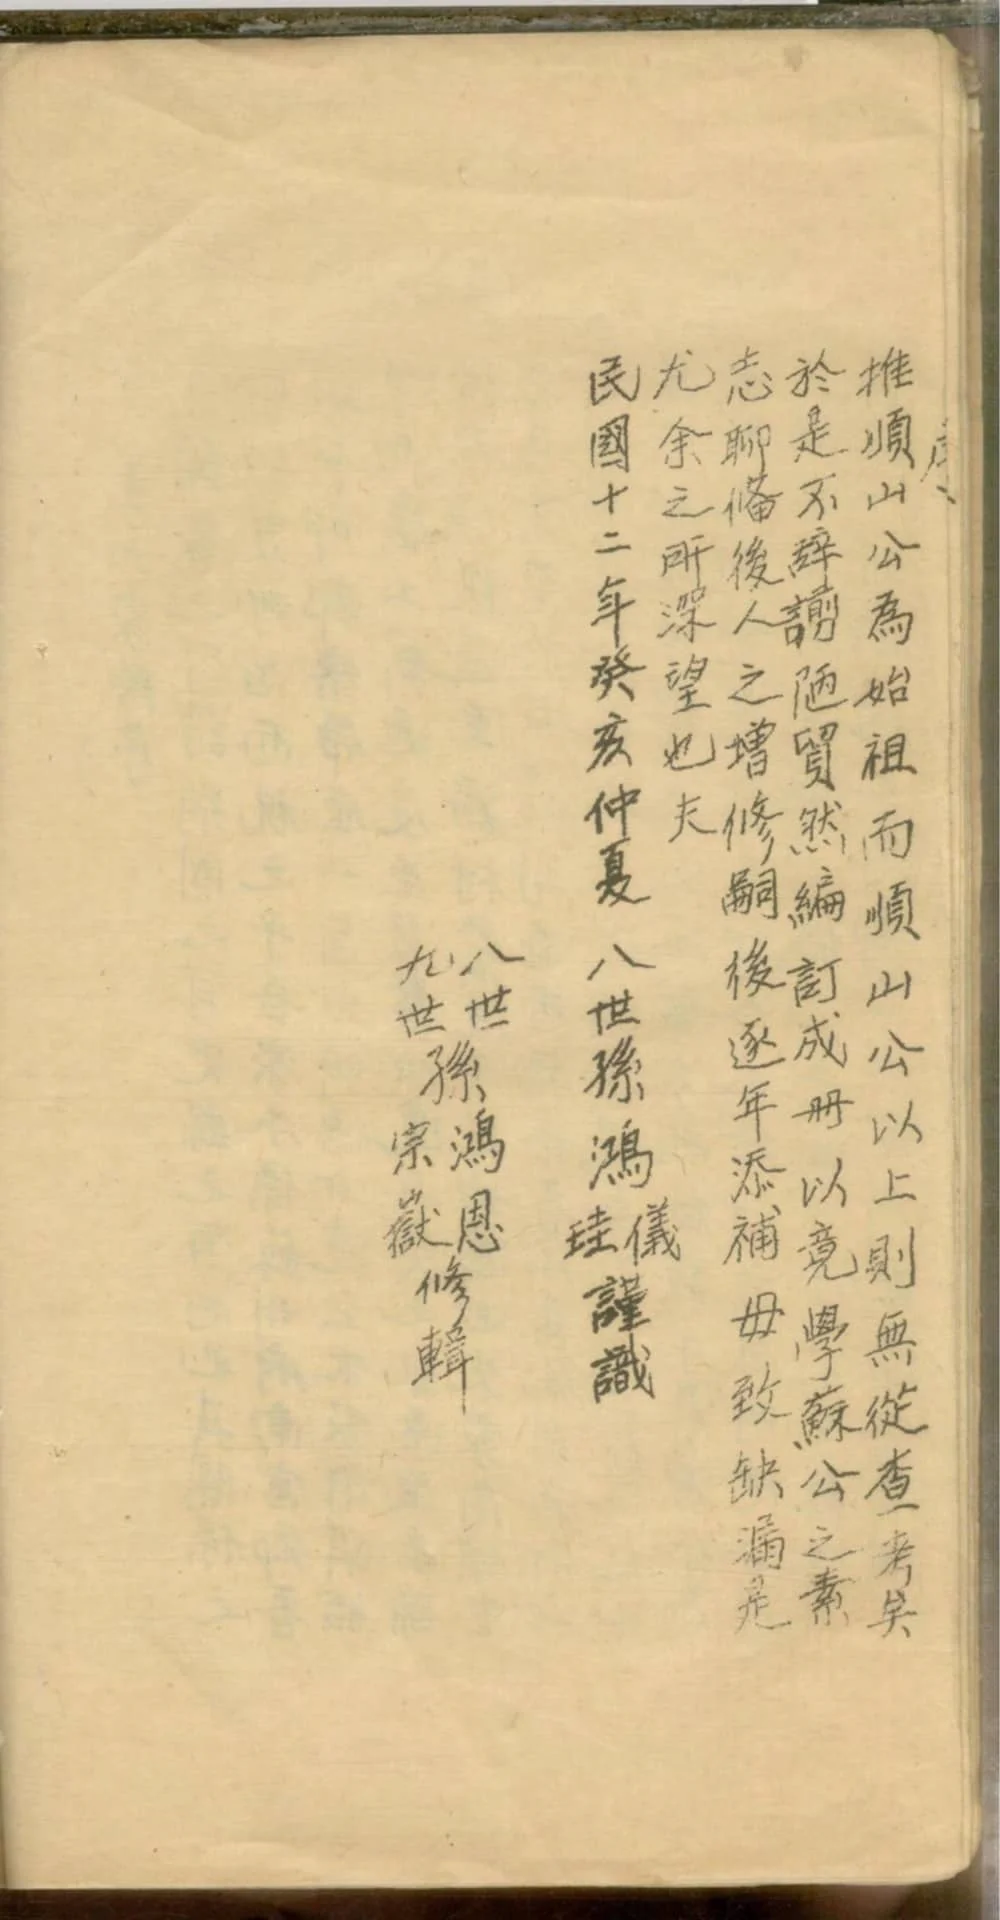 序
推順山公為始祖而順山公以上則無從查考矣
於是不辭譾陋貿然編訂成冊以竟學蘇公之素
志聊備後人之增修嗣後逐年添補毋致缺漏是
尤余之所深望也夫
民國十二年癸亥仲夏 八世孫鴻儀珪謹識
八世孫鴻恩
九世孫宗嶽修輯